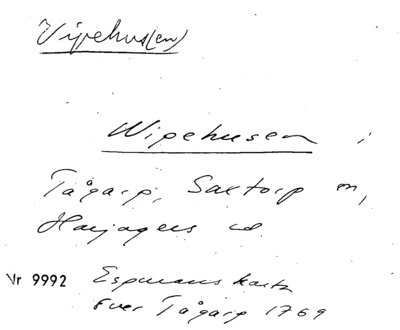 Vipehus(en)
Wipehusen i
Tågarp, Saxtorp sn,
Harjagers hd
Vr 9992 Espmans karta
över Tågarp 1769